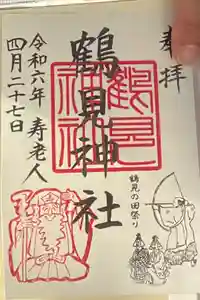 奉拝
鶴見神社
鶴見神社
鶴見の田祭り
寿老人
令和六年
四月二十七日